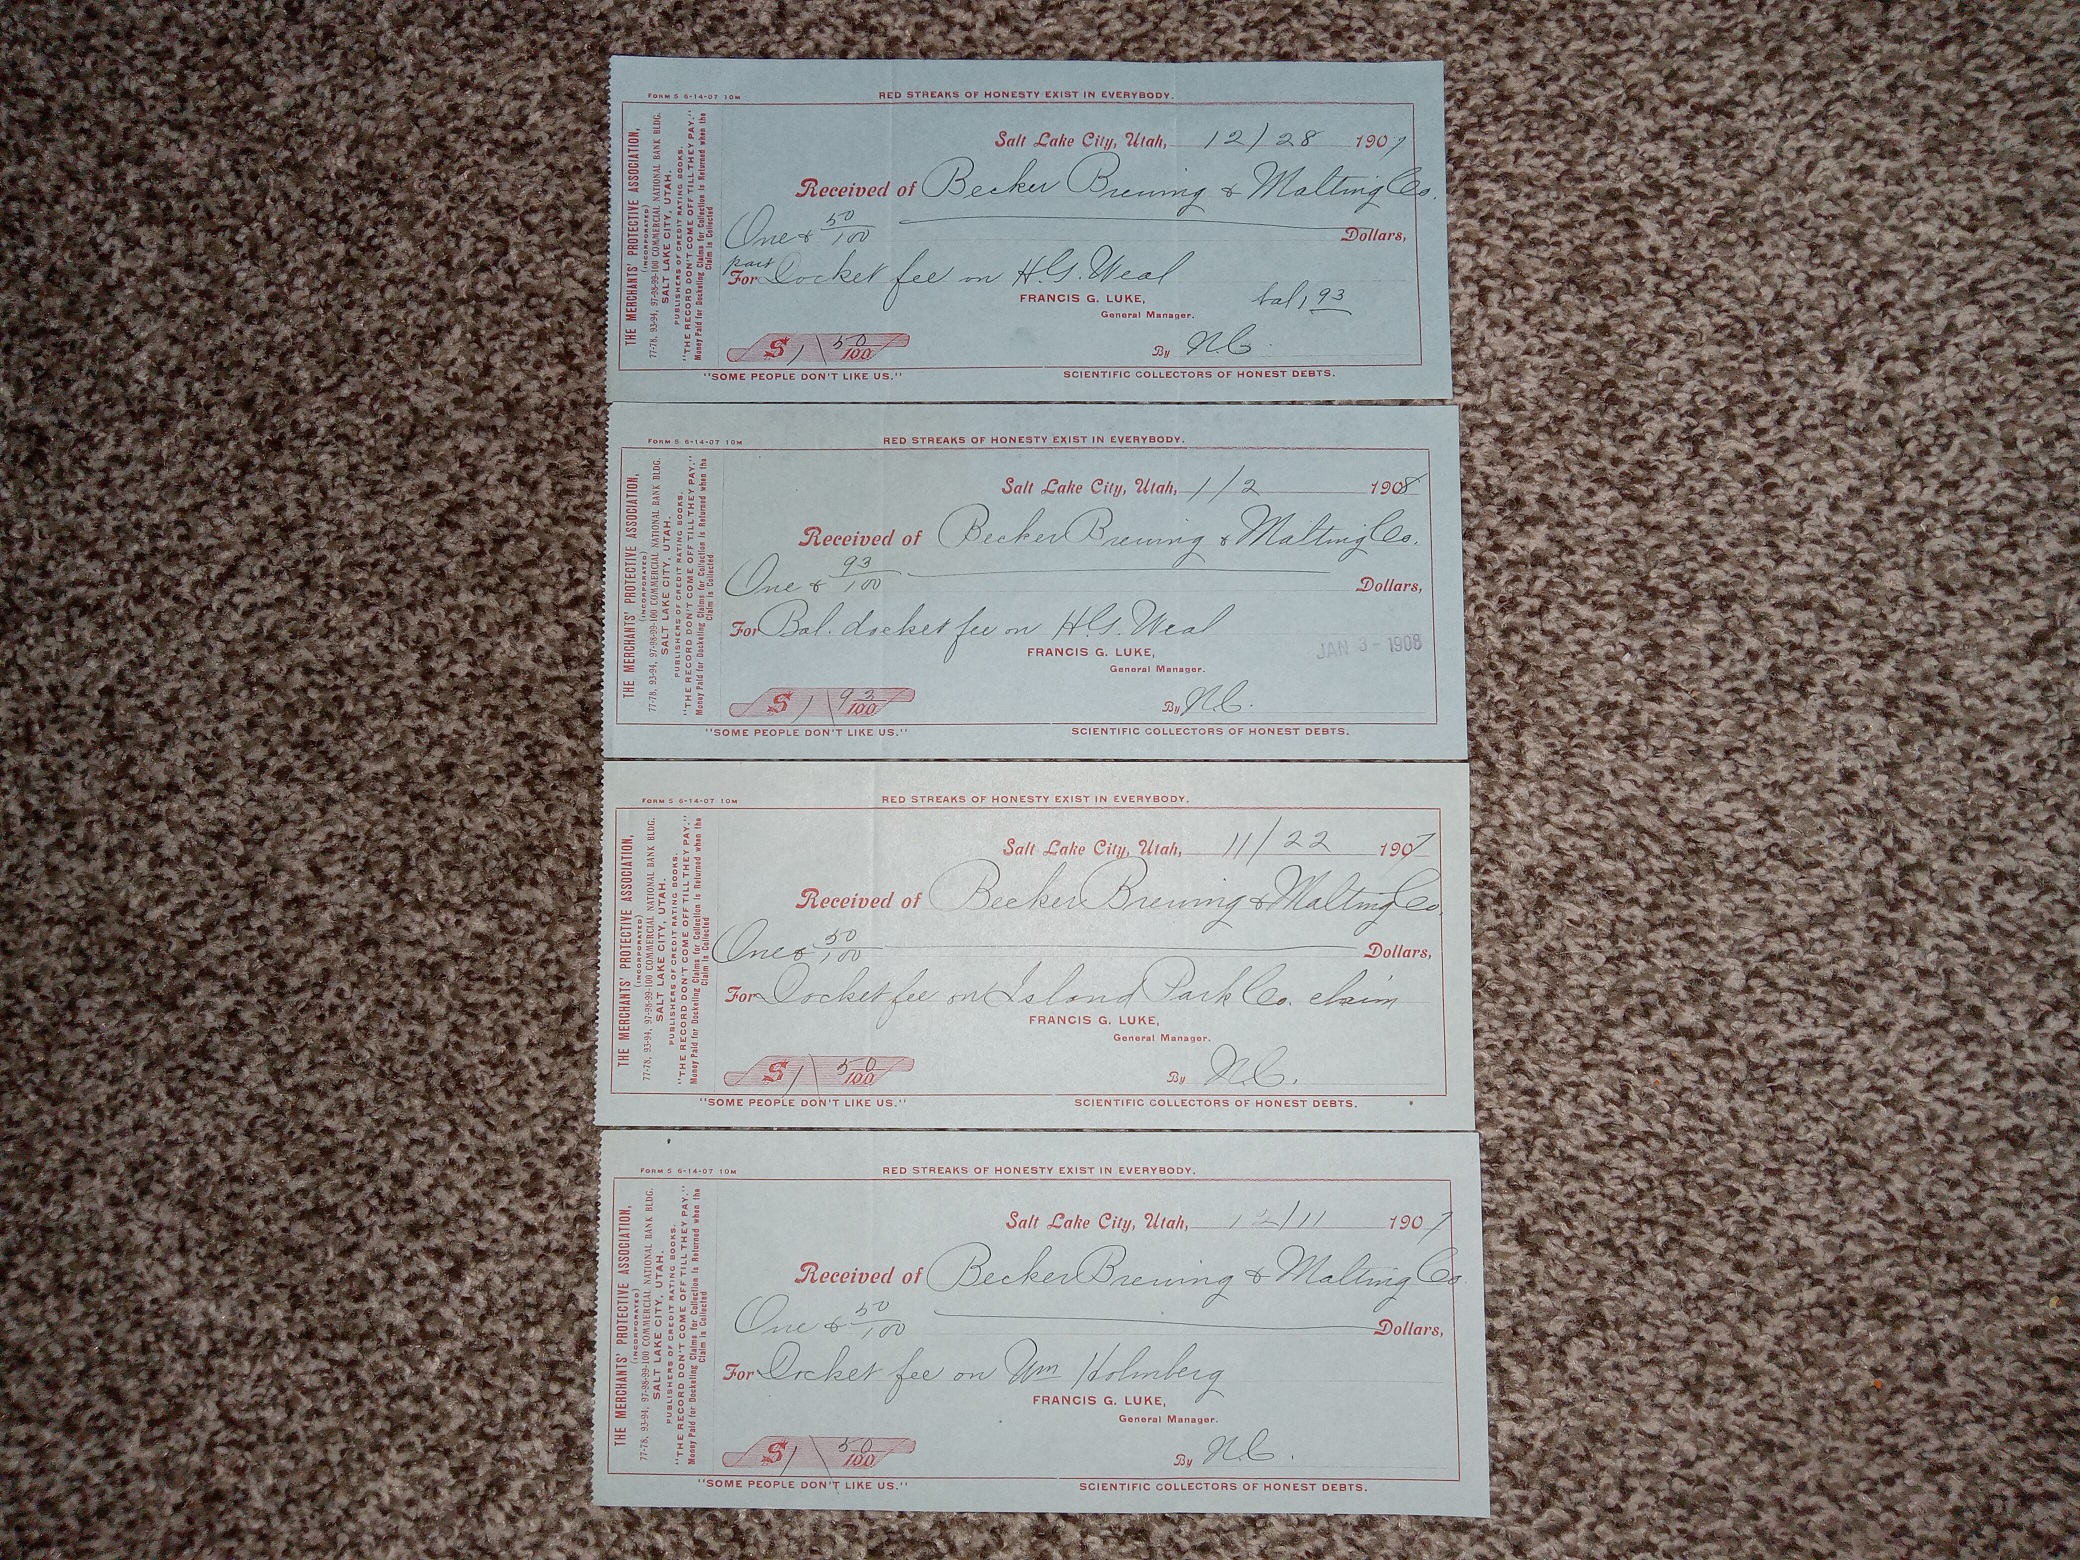 FORM 5 6-14-07 10M
RED STREAKS OF HONESTY EXIST IN EVERYBODY.
THE MERCHANTS' PROTECTIVE ASSOCIATION,
(INCORPORATED)
77-78, 93-94, 97-98-99-100 COMMERCIAL NATIONAL BANK BLDG.
SALT LAKE CITY, UTAH.
PUBLISHERS OF CREDIT RATING BOOKS.
"THE RECORD DON'T COME OFF TILL THEY PAY."
Money Paid for Docketing Claims for Collection is Returned when the
Claim is Collected
Salt Lake City, Utah, 12/28 1907
Received of Becker Brewing & Malting Co.
One & 50/100 Dollars,
part
For Docket fee on H.G. Weal
FRANCIS G. LUKE,
bal 1,93
General Manager.
$ 1 50/100
By N.C.
"SOME PEOPLE DON'T LIKE US."
SCIENTIFIC COLLECTORS OF HONEST DEBTS.
FORM 5 6-14-07 10M
RED STREAKS OF HONESTY EXIST IN EVERYBODY.
THE MERCHANTS' PROTECTIVE ASSOCIATION,
(INCORPORATED)
77-78, 93-94, 97-98-99-100 COMMERCIAL NATIONAL BANK BLDG.
SALT LAKE CITY, UTAH.
PUBLISHERS OF CREDIT RATING BOOKS.
"THE RECORD DON'T COME OFF TILL THEY PAY."
Money Paid for Docketing Claims for Collection is Returned when the
Claim is Collected
Salt Lake City, Utah, 1/2 1908
Received of Becker Brewing & Malting Co.
One & 93/100 Dollars,
For Bal. docket fee on H.G. Weal
FRANCIS G. LUKE,
JAN 3 - 1908
General Manager.
$ 1 93/100
By N.C.
"SOME PEOPLE DON'T LIKE US."
SCIENTIFIC COLLECTORS OF HONEST DEBTS.
FORM 5 6-14-07 10M
RED STREAKS OF HONESTY EXIST IN EVERYBODY.
THE MERCHANTS' PROTECTIVE ASSOCIATION,
(INCORPORATED)
77-78, 93-94, 97-98-99-100 COMMERCIAL NATIONAL BANK BLDG.
SALT LAKE CITY, UTAH.
PUBLISHERS OF CREDIT RATING BOOKS.
"THE RECORD DON'T COME OFF TILL THEY PAY."
Money Paid for Docketing Claims for Collection is Returned when the
Claim is Collected
Salt Lake City, Utah, 11/22 1907
Received of Becker Brewing & Malting Co.
One & 50/100 Dollars,
For Docket fee on Island Park Co. claim
FRANCIS G. LUKE,
General Manager.
$ 1 50/100
By N.C.
"SOME PEOPLE DON'T LIKE US."
SCIENTIFIC COLLECTORS OF HONEST DEBTS.
FORM 5 6-14-07 10M
RED STREAKS OF HONESTY EXIST IN EVERYBODY.
THE MERCHANTS' PROTECTIVE ASSOCIATION,
(INCORPORATED)
77-78, 93-94, 97-98-99-100 COMMERCIAL NATIONAL BANK BLDG.
SALT LAKE CITY, UTAH.
PUBLISHERS OF CREDIT RATING BOOKS.
"THE RECORD DON'T COME OFF TILL THEY PAY."
Money Paid for Docketing Claims for Collection is Returned when the
Claim is Collected
Salt Lake City, Utah, 12/11 1907
Received of Becker Brewing & Malting Co.
One & 50/100 Dollars,
For Docket fee on Wm Holmberg
FRANCIS G. LUKE,
General Manager.
$ 1 50/100
By N.C.
"SOME PEOPLE DON'T LIKE US."
SCIENTIFIC COLLECTORS OF HONEST DEBTS.